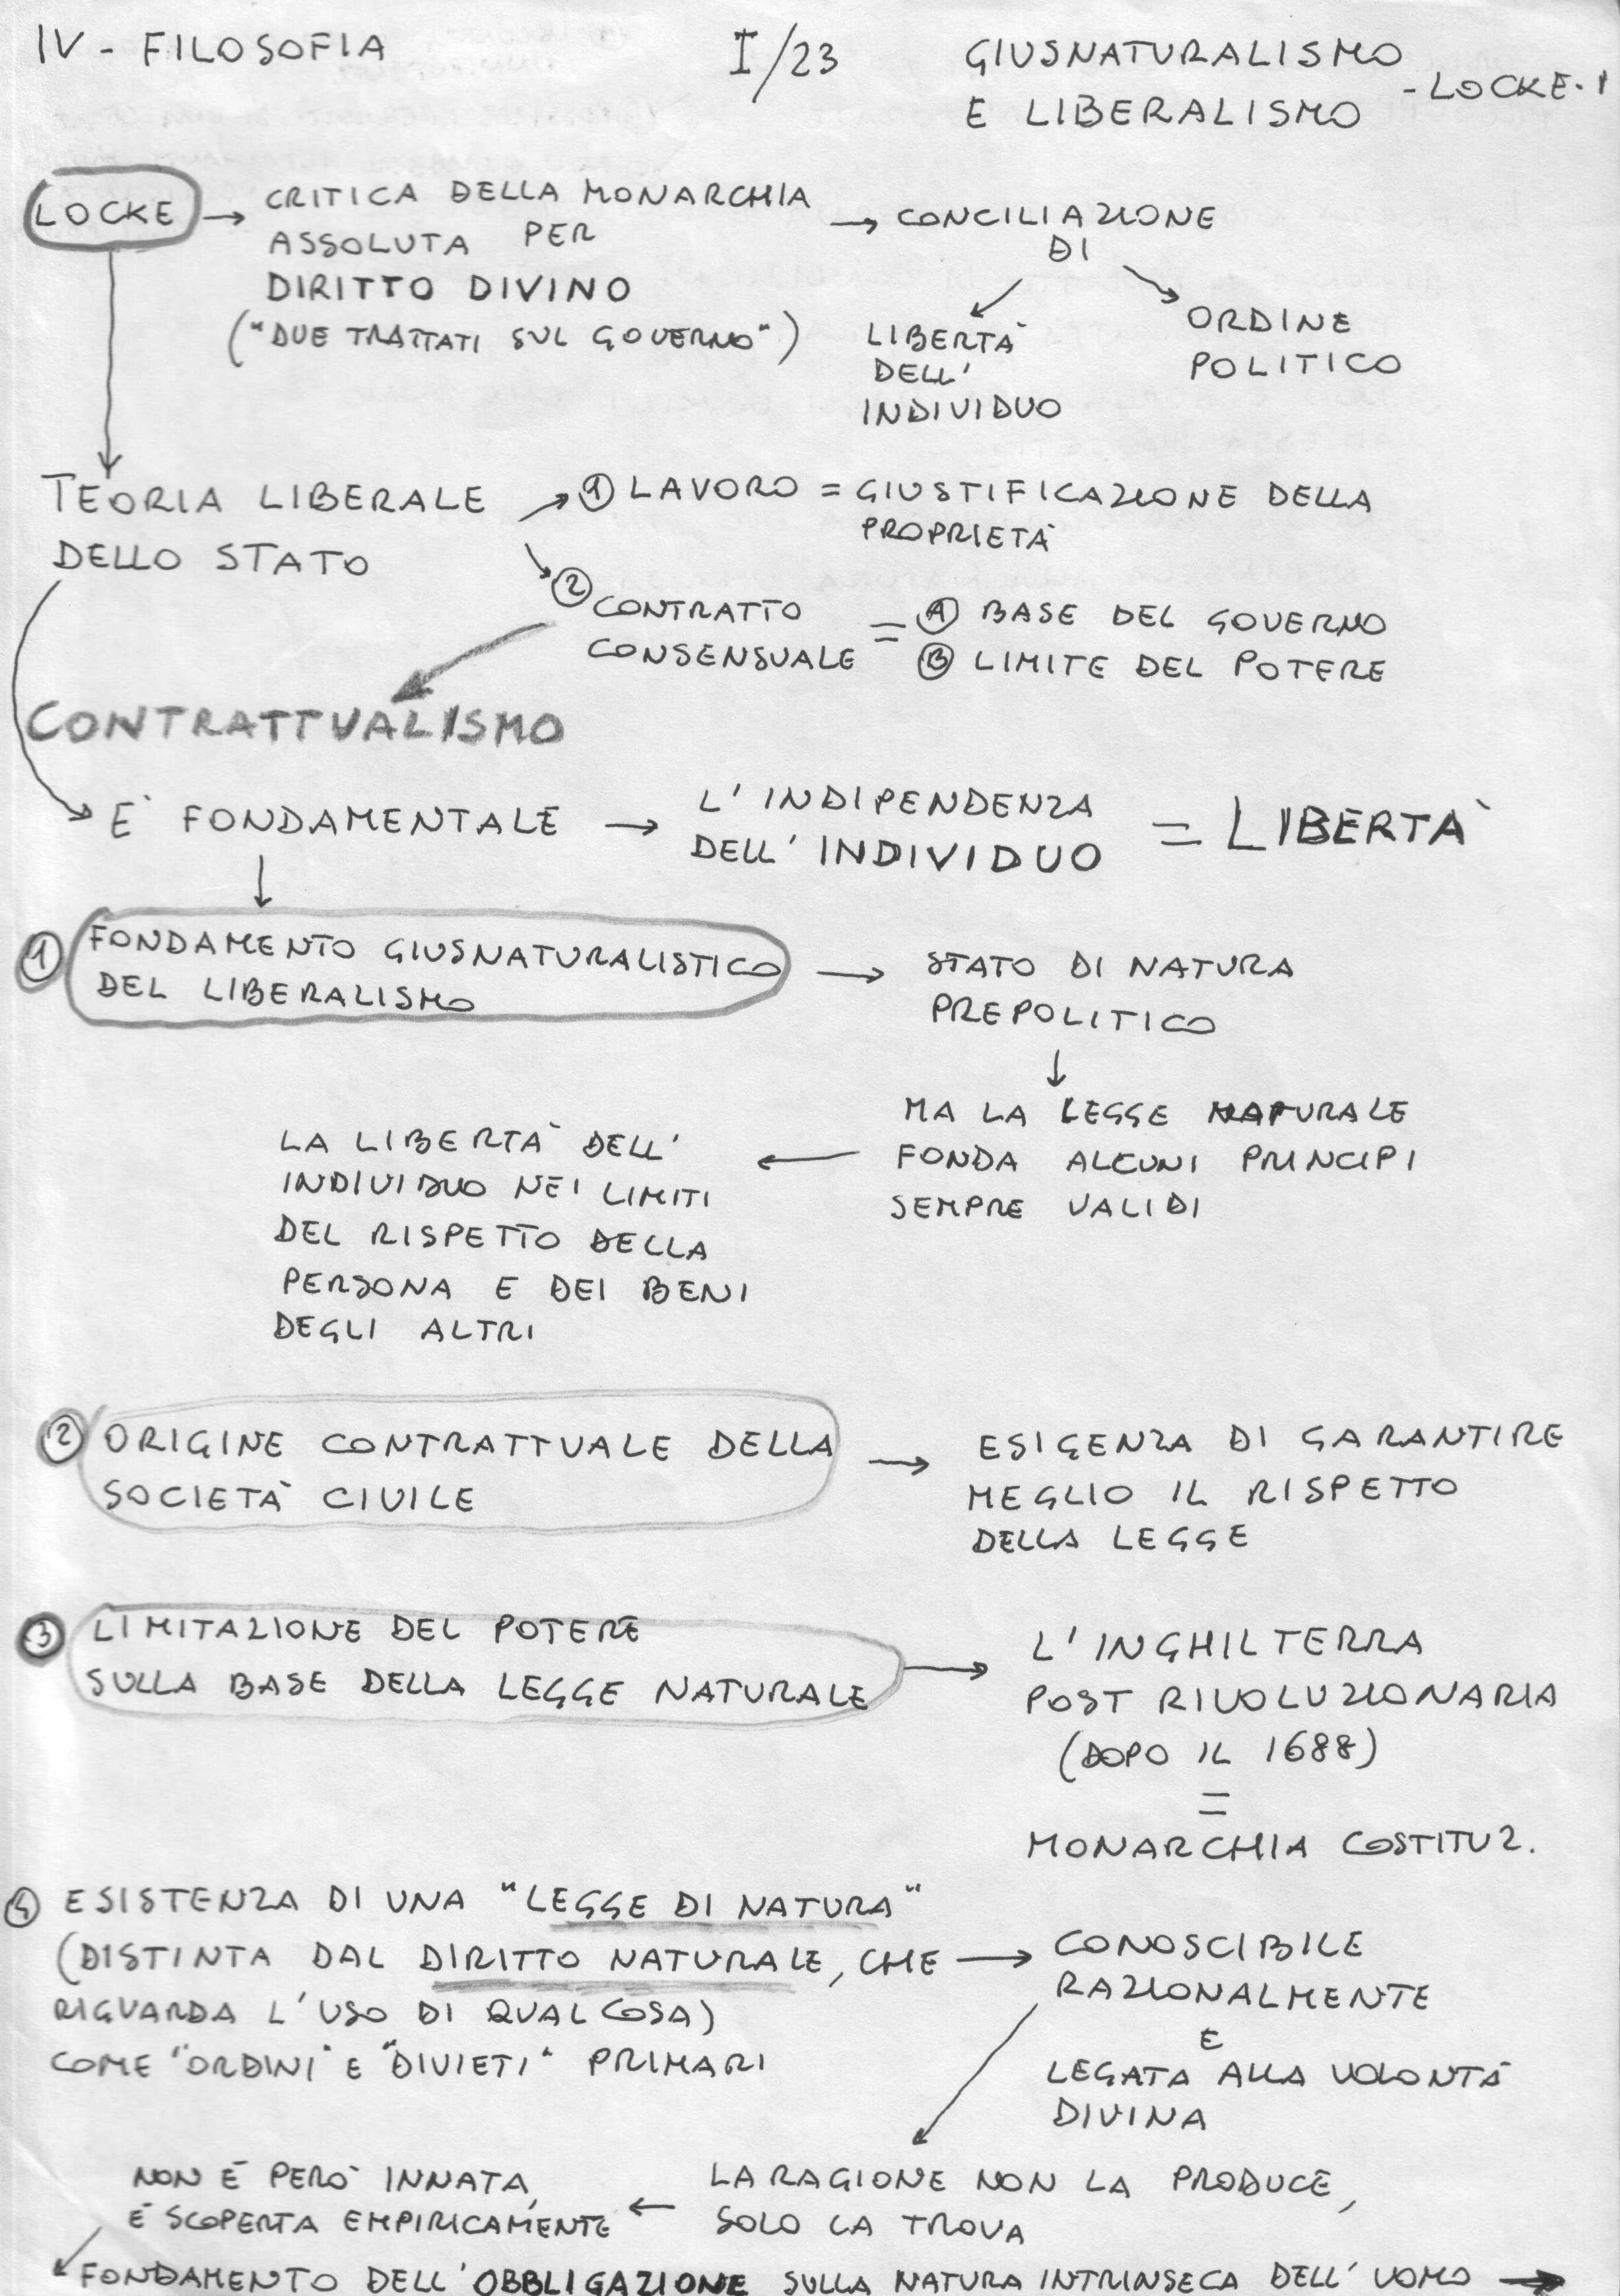 IV - FILOSOFIA
I/23
GIUSNATURALISMO
E LIBERALISMO
- LOCKE. 1
LOCKE → CRITICA DELLA MONARCHIA
ASSOLUTA PER
DIRITTO DIVINO
("DUE TRATTATI SUL GOVERNO")
→ CONCILIAZIONE
DI
LIBERTÀ
DELL'
INDIVIDUO
ORDINE
POLITICO
TEORIA LIBERALE
DELLO STATO
① LAVORO = GIUSTIFICAZIONE DELLA
PROPRIETÀ
② CONTRATTO
CONSENSUALE
= Ⓐ BASE DEL GOVERNO
Ⓑ LIMITE DEL POTERE
CONTRATTUALISMO
E' FONDAMENTALE → L'INDIPENDENZA
DELL'INDIVIDUO
= LIBERTÀ
① FONDAMENTO GIUSNATURALISTICO
DEL LIBERALISMO
→ STATO DI NATURA
PREPOLITICO
↓
MA LA LEGGE NATURALE
FONDA ALCUNI PRINCIPI
SEMPRE VALIDI
←
LA LIBERTÀ DELL'
INDIVIDUO NEI LIMITI
DEL RISPETTO DELLA
PERSONA E DEI BENI
DEGLI ALTRI
② ORIGINE CONTRATTUALE DELLA
SOCIETÀ CIVILE
→ ESIGENZA DI GARANTIRE
MEGLIO IL RISPETTO
DELLA LEGGE
③ LIMITAZIONE DEL POTERE
SULLA BASE DELLA LEGGE NATURALE
→ L'INGHILTERRA
POST RIVOLUZIONARIA
(DOPO IL 1688)
=
MONARCHIA COSTITUZ.
④ ESISTENZA DI UNA "LEGGE DI NATURA"
(DISTINTA DAL DIRITTO NATURALE, CHE
RIGUARDA L'USO DI QUALCOSA)
COME "ORDINI" E "DIVIETI" PRIMARI
→ CONOSCIBILE
RAZIONALMENTE
E
LEGATA ALLA VOLONTÀ
DIVINA
LA RAGIONE NON LA PRODUCE,
SOLO LA TROVA
←
NON È PERÒ INNATA,
È SCOPERTA EMPIRICAMENTE
FONDAMENTO DELL'OBBLIGAZIONE SULLA NATURA INTRINSECA DELL'UOMO →